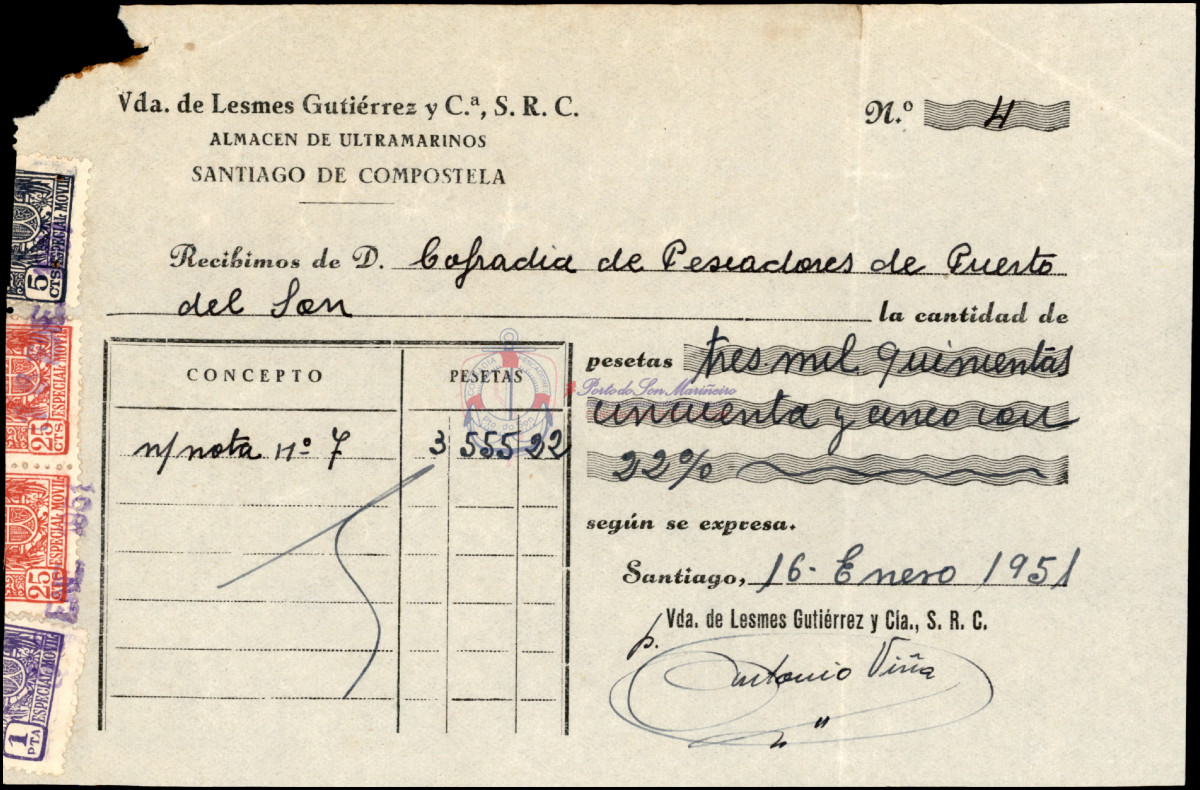 Vda. de Lesmes Gutiérrez y C.ª, S. R. C.
ALMACEN DE ULTRAMARINOS
SANTIAGO DE COMPOSTELA
N.º 4
Recibimos de D. Cofradia de Pescadores de Puerto
del Son la cantidad de
pesetas tres mil quinientas
cincuenta y cinco con
22%
según se expresa.
Santiago, 16 - Enero 1951
Vda. de Lesmes Gutiérrez y Cía., S. R. C.
p.
Antonio Viña
CONCEPTO PESETAS
n/ nota nº 7 3 555 22
Porto do Son Mariñeiro
5 CTS ESPECIAL MOVIL
25 CTS ESPECIAL MOVIL
25 CTS ESPECIAL MOVIL
1 PTA ESPECIAL MOVIL